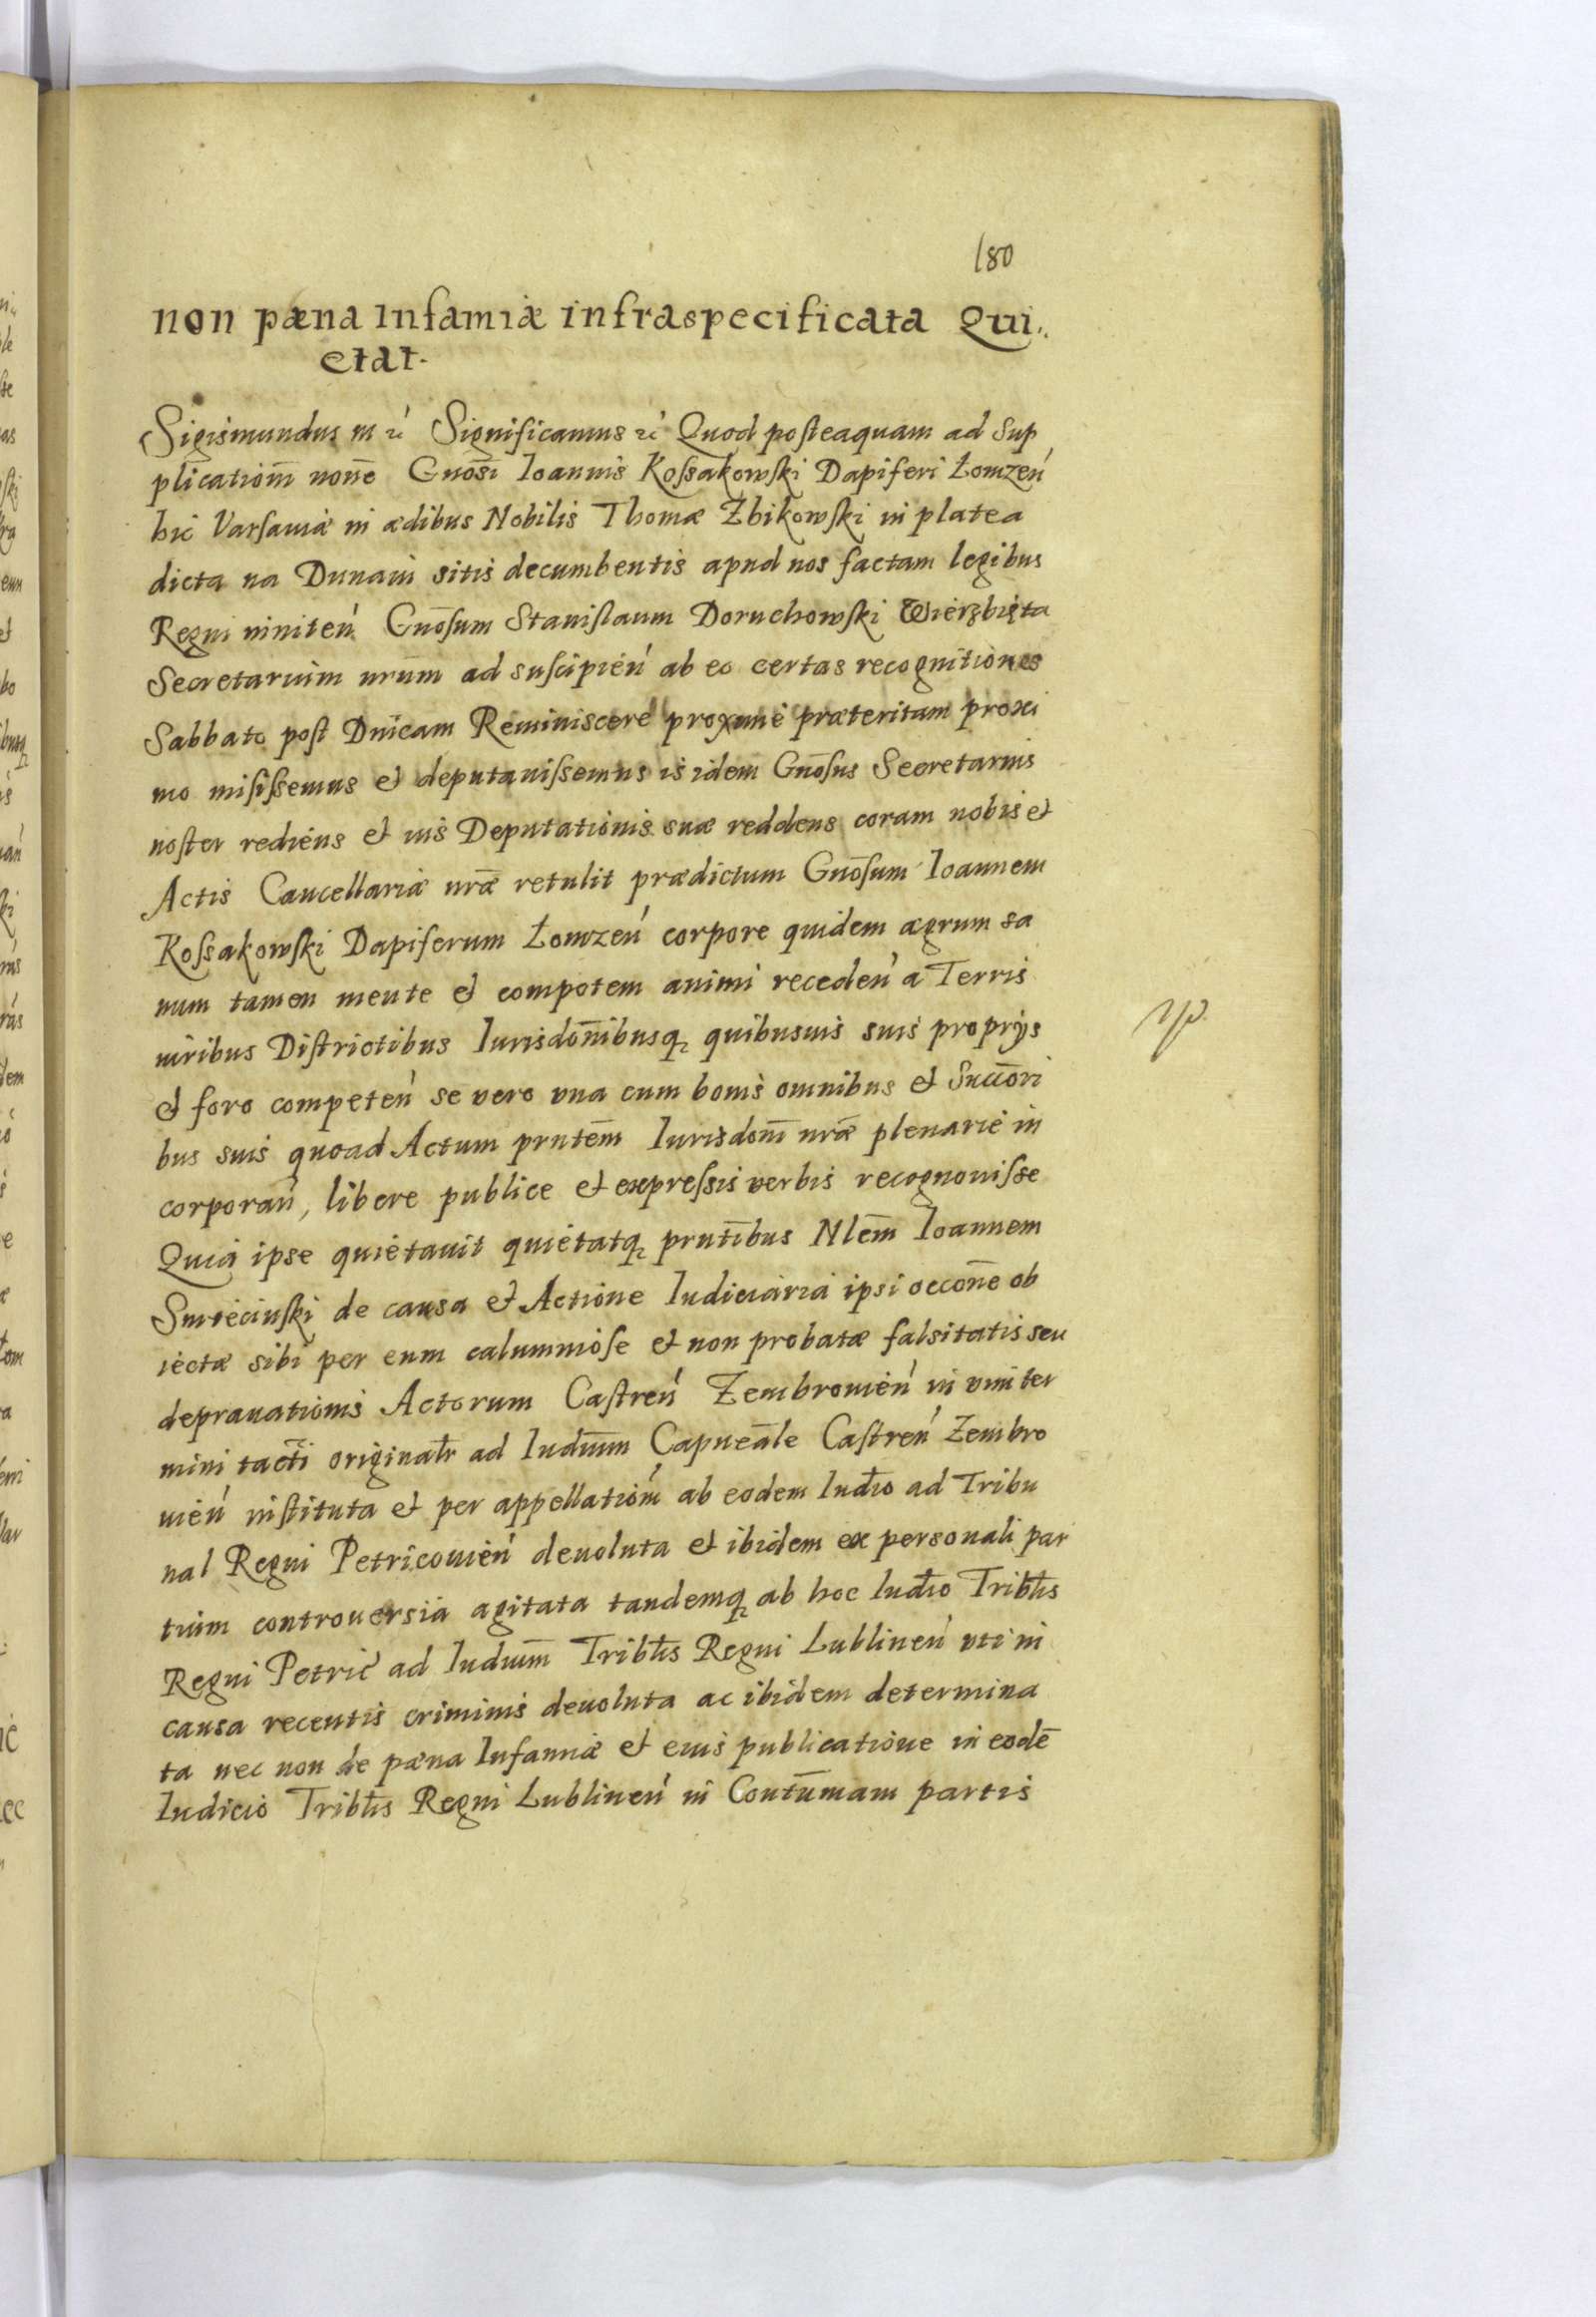 180
non pæna Infamiæ infraspecificata Qui..
etat.
Sigismundus III etc Significamus etc Quod posteaquam ad Sup
plicationm̃ noñe Gnosi Ioannis Kossakowski Dapiferi Łomzeń
hic Varsaviæ in ædibus Nobilis Thomæ Zbikowski in platea
dicta na Dunaiu sitis decumbentis apud nos factam legibus
Regni initeń Gnōsum Stanislaum Doruchowski Wierzbięta
Secretarium nrūm ad suscipień ab eo certas recognitiones
Sabbato post Dnīcam Reminiscere proxime præteritam proxi
mo misissemus et deputauissemus is idem Gnōsus Secretarius
noster rediens et uis Deputationis suæ reddens coram nobis et
Actis Cancellariæ nrǣ retulit prædictum Gnōsum Ioannem
Kossakowski Dapiferum Łomzeń corpore quidem ægrum sa
num tamen mente et compotem animi recedeń a Terris
iuribus Districtibus Iurisdonībusq, quibusuis suis proprijs
et foro competeń se vero vna cum bonis omnibus et Succōri
bus suis quoad Actum prntēm Iurisdonī nrǣ plenarie in
corporań, libere publice et expressis verbis recognouisse
Quia ipse quietauit quietatq, prntībus Nlēm Ioannem
Smieciuski de causa et Actione Iudiciaria ipsi occonē ob
iectæ sibi per eum calumniose et non probatæ falsitatis seu
deprauationis Actorum Castreń Zembrouień in vim ter
mini tactī originalr ad Iudiūm Capneāle Castreń Zembro
uień instituta et per appellationḿ ab eodem Iudio ad Tribu
nal Regni Petricouień deuoluta et ibidem ex personali par
tium controuersia agitata tandemq, ab hoc Iudio Triblis
Regni Petric ad Iudiūm Triblis Regni Lublineń vti in
causa recentis criminis deuoluta ac ibidem determina
ta nec non de pæna Infamiæ et eius publicatione in eodē
Iudicio Triblis Regni Lublineń in Contūmam partis